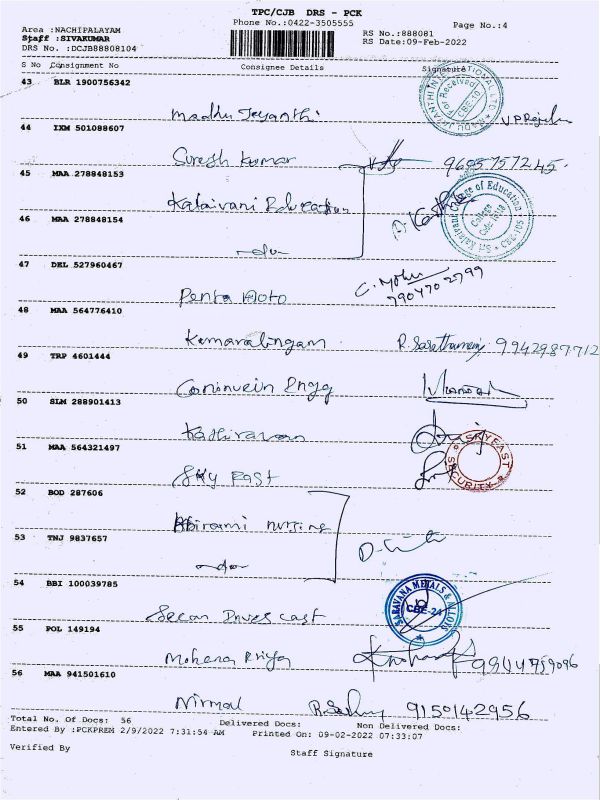 TPC/CJB DRS - PCK
Phone No.:0422-3505555
Page No.:4
Area :NACHIPALAYAM
Staff :SIVAKUMAR
DRS No. :DCJB88808104
RS No.:888081
RS Date:09-Feb-2022
S No Consignment No Consignee Details Signature
43 BLR 1900756342
Madhu Jeyanthi
44 IXM 501088607
Suresh Kumar 9605757245.
45 MAA 278848153
Kalaivani Education
46 MAA 278848154
-do-
47 DEL 527960467
Penta Auto C. Mohan 7904702799
48 MAA 564776410
Kumaralingam 9942987712
49 TRP 4601444
Engg
50 SLM 288901413
Kathiravan
51 MAA 564321497
Sky East
SKYEAST SECURITY
52 BOD 287606
Abirami nursing
53 TNJ 9837657
-do-
54 BBI 100039785
Secon Drives cast
SARAVANA METALS & ALLOYS
CBE-24
55 POL 149194
Mohana Priya 9944759096
56 MAA 941501610
Nirmal 9150142956
Total No. Of Docs: 56 Delivered Docs: Non Delivered Docs:
Entered By :PCKPREM 2/9/2022 7:31:54 AM Printed On: 09-02-2022 07:33:07
Verified By Staff Signature